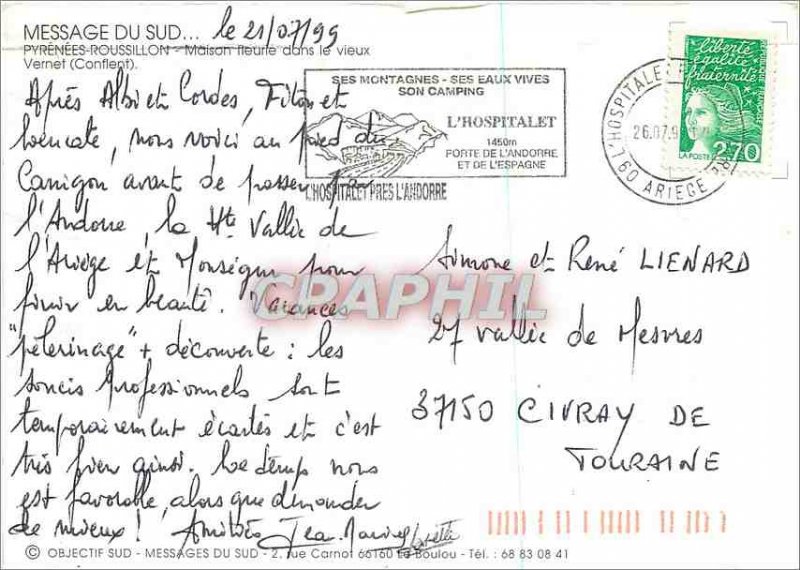 MESSAGE DU SUD... le 21/07/99
PYRÉNÉES-ROUSSILLON - Maison fleurie dans le vieux
Vernet (Conflent).
Après Albi et Cordes, Fitou et
Leucate, nous voici au pied du
Canigou avant de passer par
l'Andorre, la Hte Vallée de
l'Ariège et Monségur pour
finir en beauté. Vacances
"pèlerinage" + découverte : les
soucis professionnels sont
temporairement écartés et c'est
très bien ainsi. Le temps nous
est favorable, alors que demander
de mieux ! Amitiés Jean-Marie
© OBJECTIF SUD - MESSAGES DU SUD - 2, rue Carnot 66160 Le Boulou - Tél. : 68 83 08 41
SES MONTAGNES - SES EAUX VIVES
SON CAMPING
L'HOSPITALET
1450m
PORTE DE L'ANDORRE
ET DE L'ESPAGNE
L'HOSPITALET PRES L'ANDORRE
L'HOSPITALET
26.07.9
09 ARIEGE
liberté
égalité
fraternité
RÉPUBLIQUE FRANÇAISE
LA POSTE 2,70
Simone et René LIENARD
27 vallée de Mesvres
37150 CIVRAY DE
TOURAINE
CPAPHIL